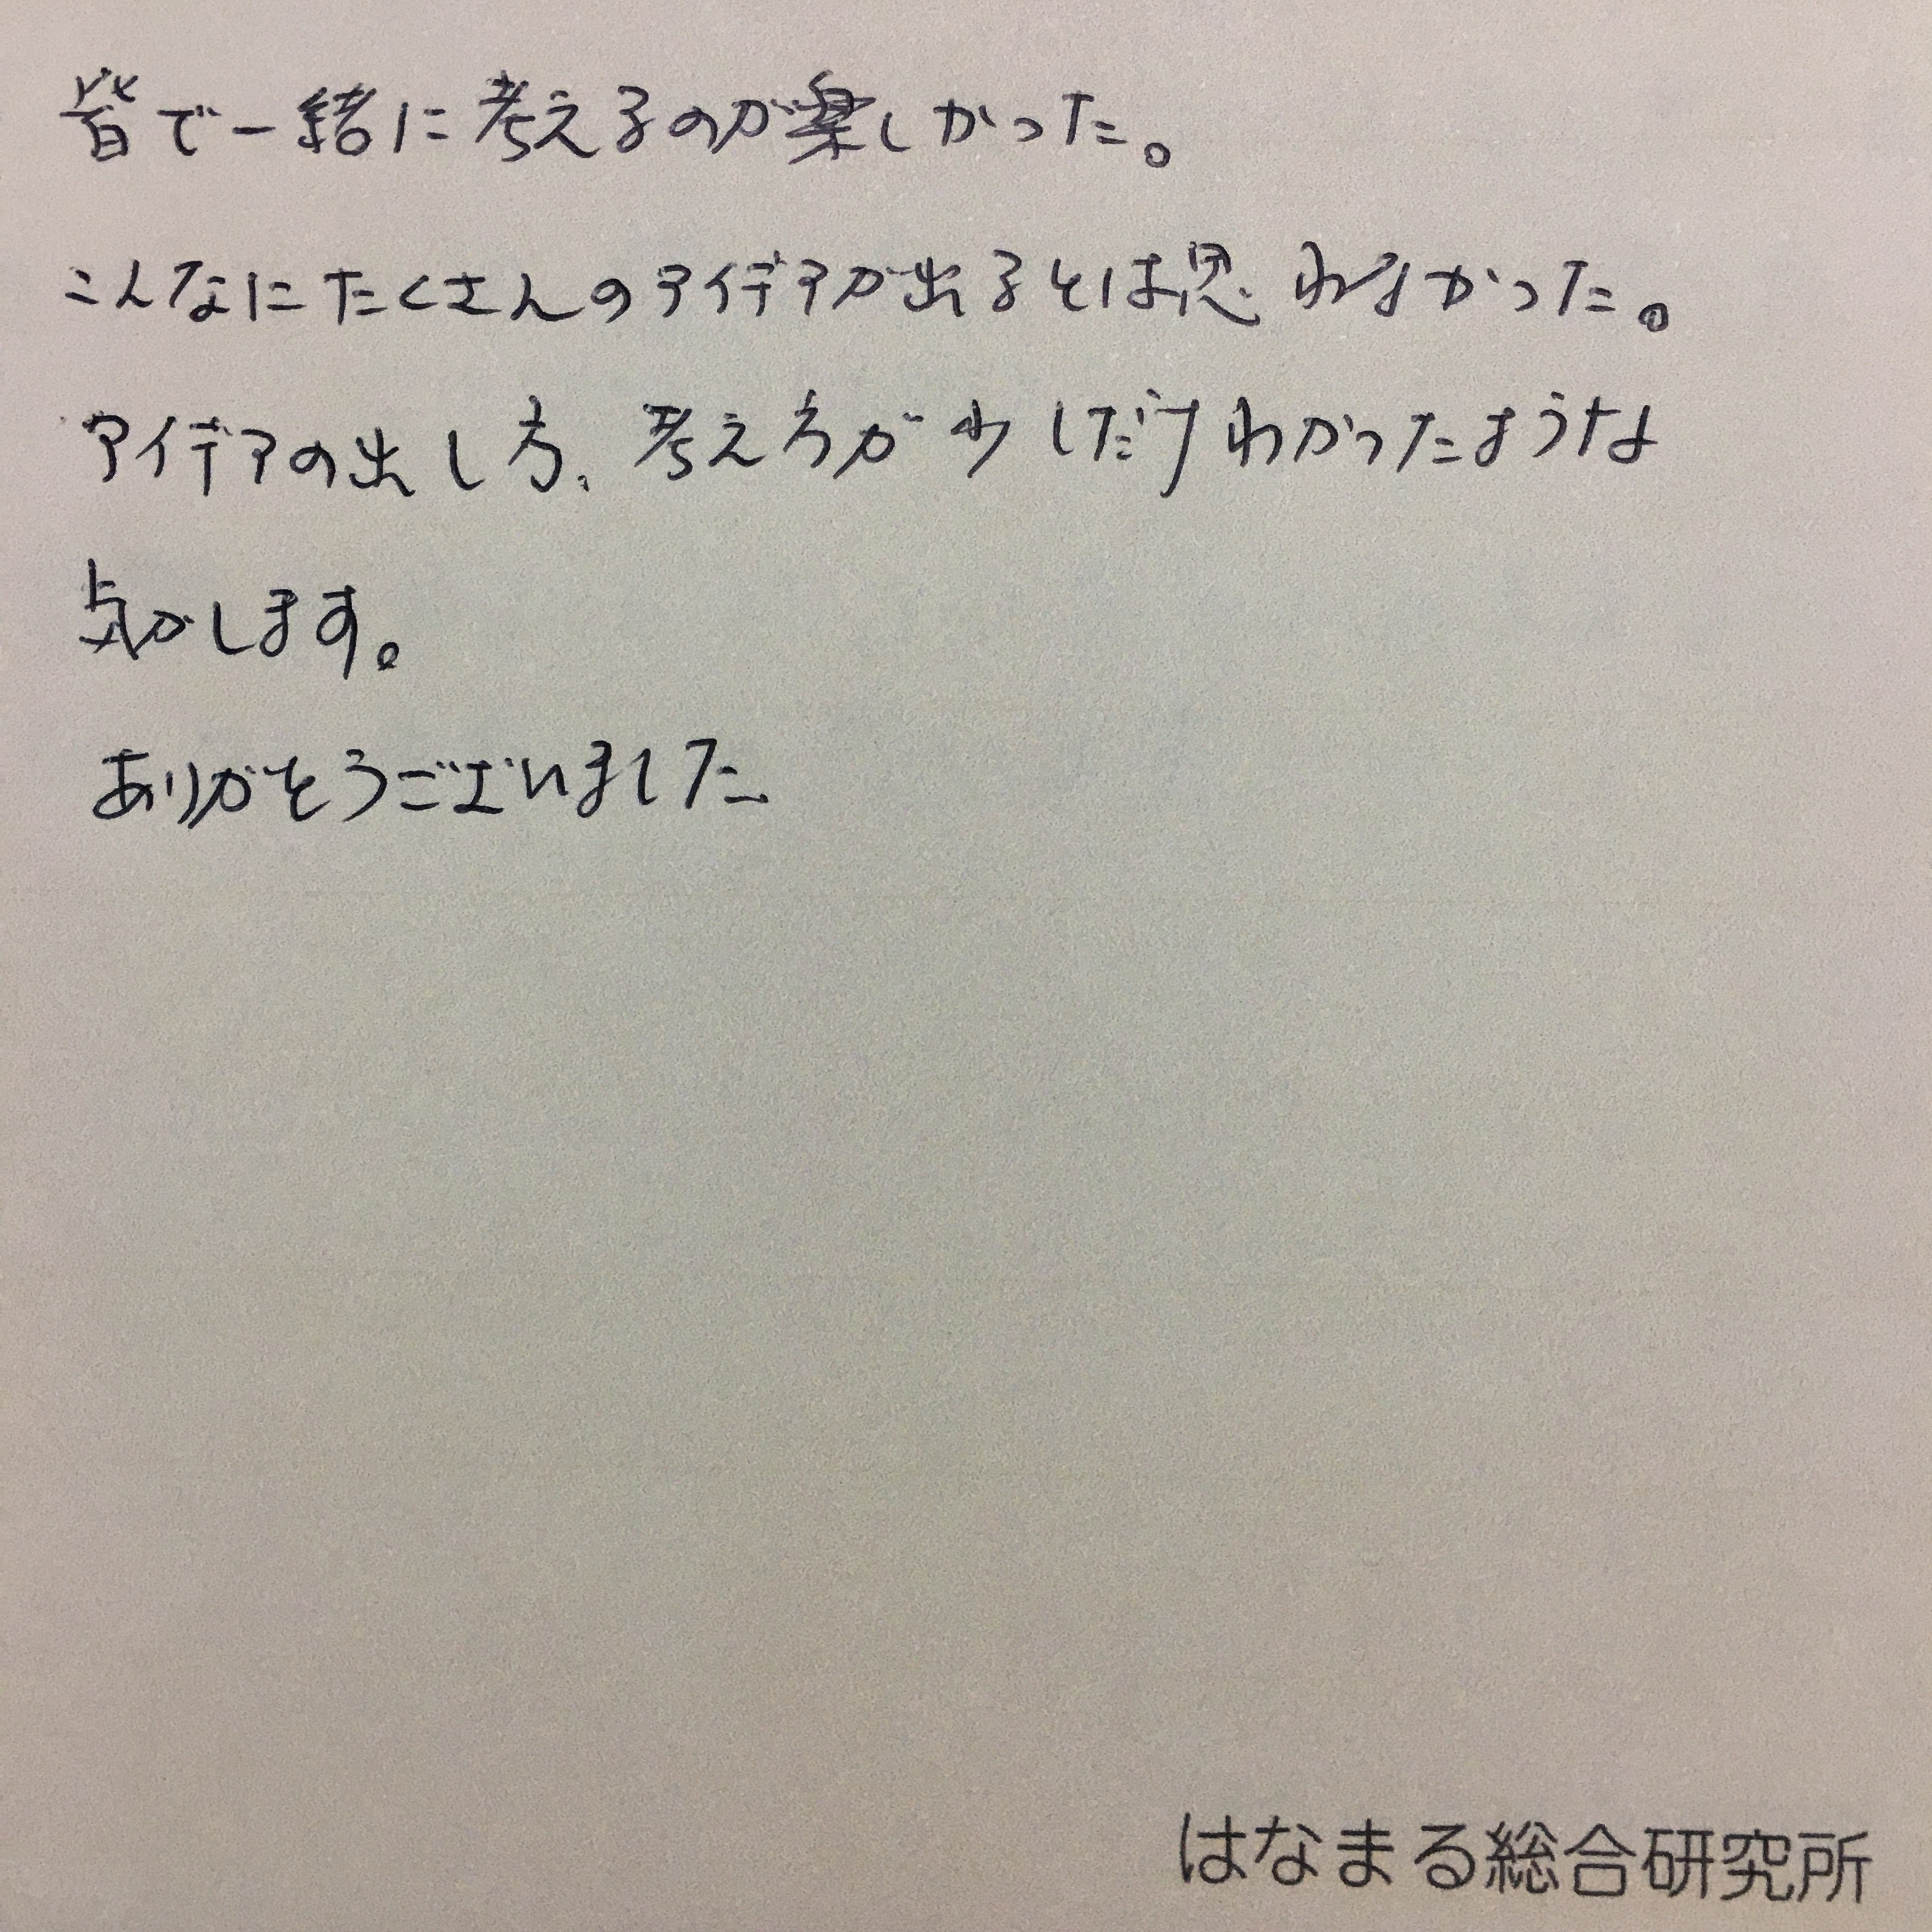 皆で一緒に考えるのが楽しかった。
こんなにたくさんのアイデアが出るとは思わなかった。
アイデアの出し方、考え方が少しだけわかったような
気がします。
ありがとうございました
はなまる総合研究所